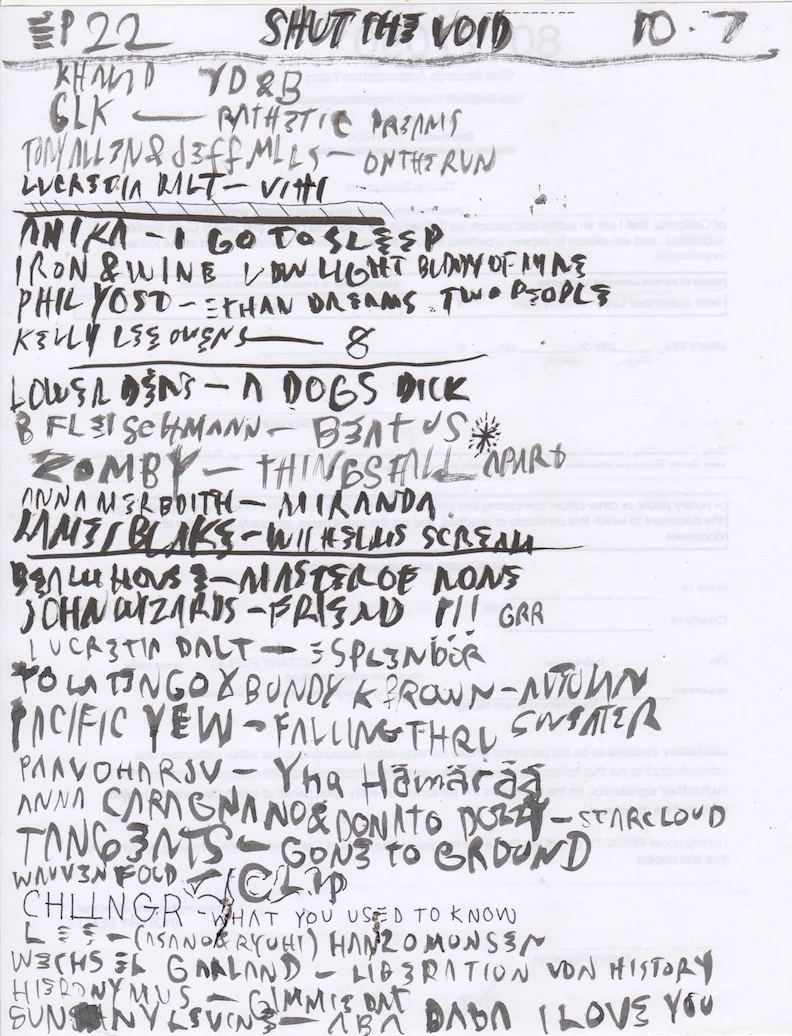 EP 22 SHUT THE VOID 10.7
KHALID YD&B
GLK — PATHETIC DREAMS
TONY ALLEN & JEFF MILLS — ON THE RUN
LUCRETIA DALT —
ANIKA I GO TO SLEEP
IRON & WINE LOW LIGHT BUDDY OF MINE
PHIL YOST — ETHAN DREAMS TWO PEOPLE
KELLY LEE OWENS — 8
LOWER DENS — A DOGS DICK
B FLEISCHMANN — BEAT US
ZOMBY — THINGS FALL APART
ANNA MEREDITH — MIRANDA
JAMES BLAKE — WILHELMS SCREAM
BEACH HOUSE — MASTER OF NONE
JOHN WIZARDS — FRIEND !!! GRR
LUCRETIA DALT — ESPLENDOR
YO LA TENGO & BUNDY K BROWN — AUTUMN SWEATER
PACIFIC YEW — FALLING THRU
PAAVOHARJU —
ANNA CARAGNANO & DONATO DOZZY — STARCLOUD
TANGENTS — GONE TO GROUND
WAUVENFOLD — CLIP
CHLLNGR - WHAT YOU USED TO KNOW
LEE — (ASANO & RYUHI) HANZOMONSEN
WECHSEL GARLAND — LIBERATION VON HISTORY
HIERONYMUS — GIMMIE DAT
LEVINE — ABA DABA I LOVE YOU